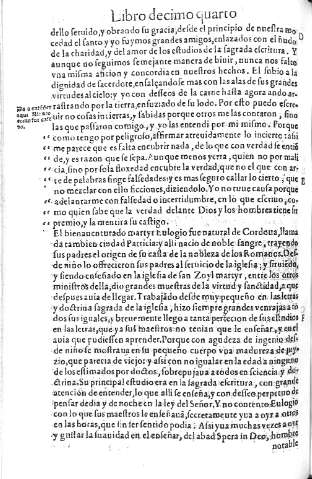 Libro decimo quarto
dello seruido, y obrando su gracia, desde el principio de nuestra mo
cedad el santo y yo fuymos grandes amigos, enlazados con el ñudo
de la charidad, y del amor de los estudios de la sagrada escritura. Y
aunque no seguimos semejante manera de biuir, nunca nos falto
vna misma aficion y concordia en nuestros hechos. El subio a la
dignidad de sacerdote, ensalçandose mas con las alas de sus grandes
virtudes al cielo: y yo con desseos de la carne hasta agora ando ar-
rastrando por la tierra, ensuziado de su lodo. Por esto puedo escre-
uir no cosas inciertas, y sabidas porque otros me las contaron, sino
las que passaron comigo, y yo las entendi por mi mismo. Porque
como tengo por peligroso, affirmar atreuidamente lo incierto: assi
me parece que es falta encubrir nada, de lo que con verdad se entié
de, y es razon que se sepa. Aunque menos yerra, quien no por mali
cia, sino por sola floxedad encubre la verdad, que no el que con ar-
te de palabras finge falsedades: y es mas seguro callar lo cierto, que
no mezclar con ello ficciones, diziendolo. Yo no truxe causa porque
adelantarme con falsedad o incertidumbre, en lo que escriuo, co-
mo quien sabe que la verdad delante Dios y los hombres tiene su
premio, y la mentira su castigo.
El bienauenturado martyr Eulogio fue natural de Cordoua, llama
da tambien ciudad Patricia: y alli nacio de noble sangre, trayendo
sus padres el origen de su casta de la nobleza de los Romanos. Des-
de niño lo ofrecieron sus padres al seruicio de la iglesia; y siruiédo,
y siendo enseñado en la iglesia de san Zoyl martyr, entre los otros
ministros della, dio grandes muestras de la virtud y sanctidad, a que
despues auia de llegar. Trabajado desde muy pequeño en las letras
y doctrina sagrada de la iglesia, hizo siempre grandes ventajas a to
dos sus iguales, y breuemente llego a tanta perfecion de sus estudios
en las letras, que ya sus maestros no tenian que le enseñar, y en el
auia que pudiessen aprender. Porque con agudeza de ingenio des-
de niño se mostraua en su pequeño cuerpo vna madureza de juy-
zio, que parecia de viejo: y assi con no igualar en la edad a ninguno
de los estimados por doctos, sobrepujaua a todos en sciencia y do-
ctrina. Su principal estudio era en la sagrada escritura, con grande
atencion de entender, lo que alli se enseña, y con desseo perpetuo de
pensar de dia y de noche en la ley del Señor. Y no contento Eulogio
con lo que sus maestros le enseñauã, secretamente yua a oyr a otros
en las horas, que sin ser sentido podia. Assi yua muchas vezes a oyr
y gustar la suauidad en el enseñar, del abad Spera in Deo, hombre
notable